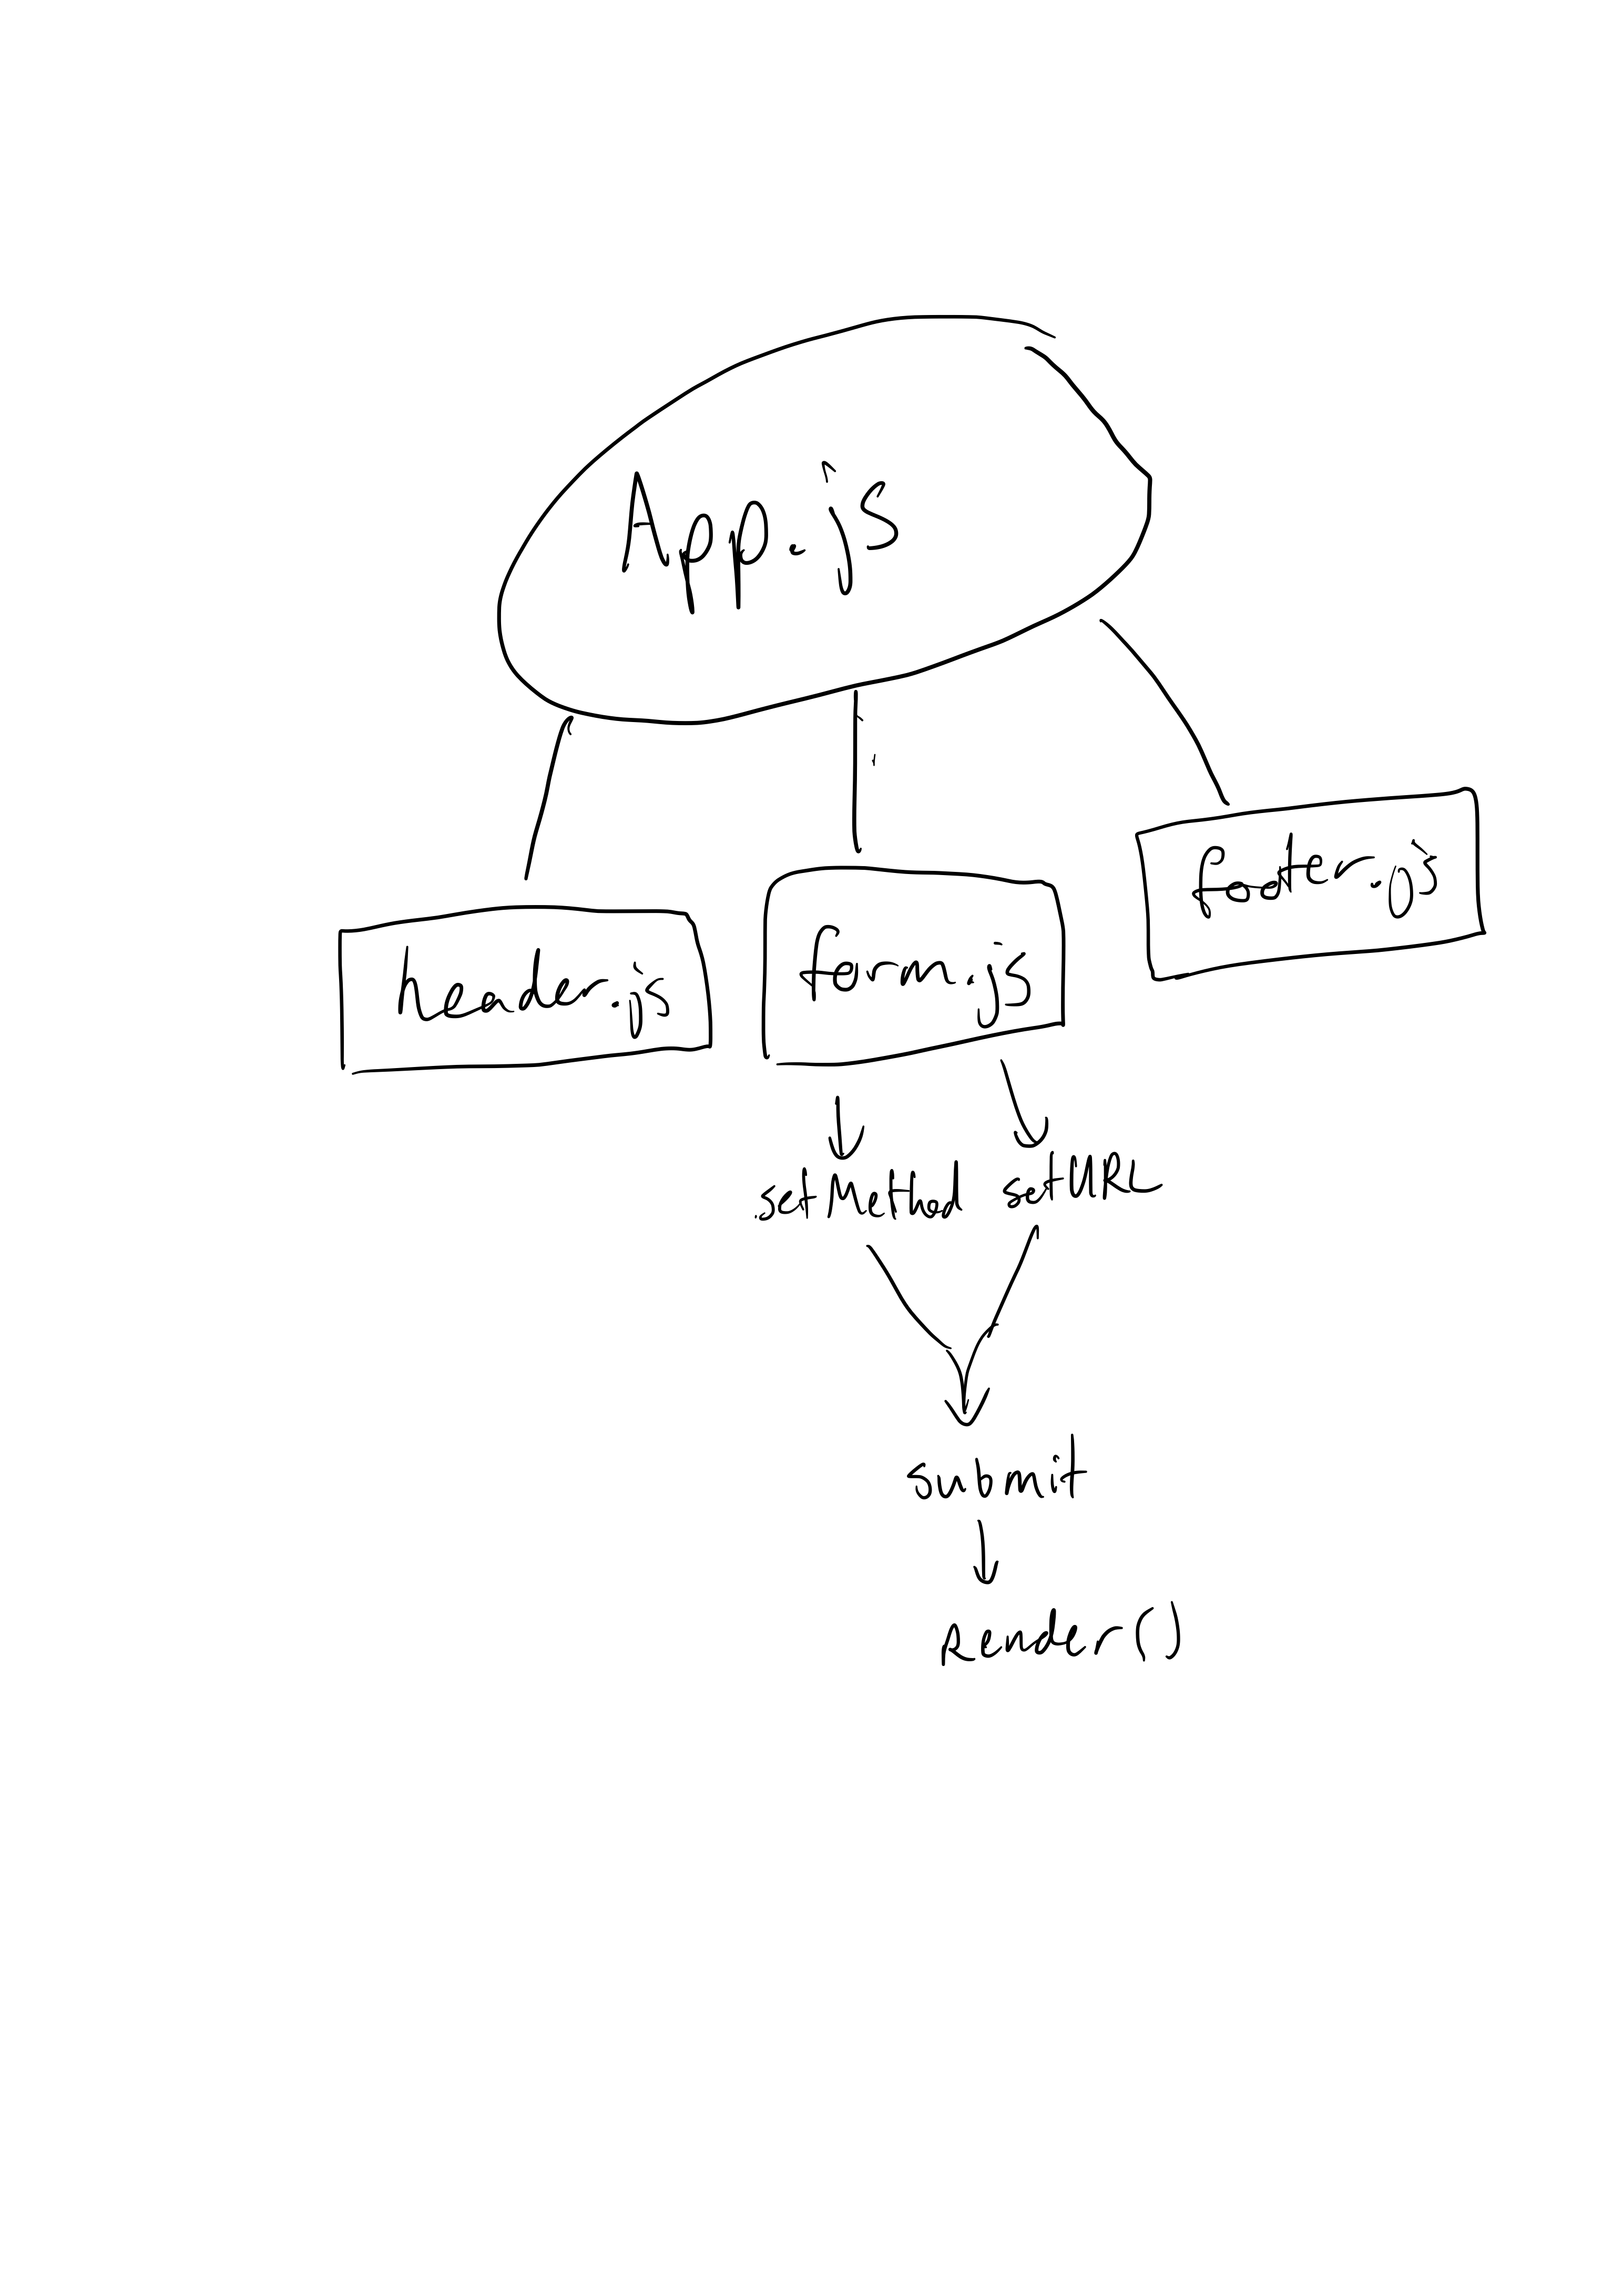 App.js
header.js
form.js
footer.js
setMethod
setURL
submit
Render()